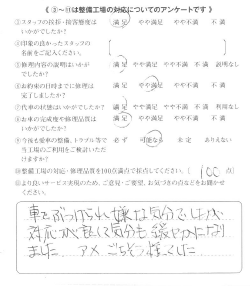 《 ③〜⑪は整備工場の対応についてのアンケートです 》
③スタッフの接客・接客態度は
いかがでしたか?
満足 やや満足 やや不満 不満
④印象の良かったスタッフの
名前をご記入ください。
⑤修理内容の説明はいかが
でしたか?
満足 やや満足 やや不満 不満 説明なし
⑥お約束の日時までに修理は
完了しましたか?
満足 やや満足 やや不満 不満
⑦代車の状態はいかがでしたか?
満足 やや満足 やや不満 不満
⑧お車の完成度や修理品質は
いかがでしたか?
満足 やや満足 やや不満 不満
⑨今後も愛車の整備、トラブル等で
当工場のご利用をご検討いただ
けますか?
必ず 可能なら 未定 ありえない
⑩整備工場の対応・修理品質を100点満点で採点してください。 ( 100 点)
⑪より良いサービス実現のため、ご意見・ご要望、お気づきの点などをお聞かせ
ください。
車をぶつけられ嫌な気分でしたが
対応が優しくて気分も穏やかになり
ました アメ ごちそう様でした